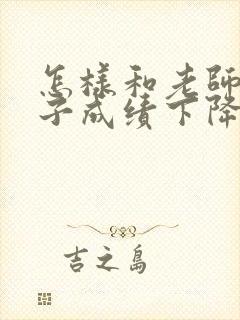 怎樣和老師
子成绩下降
吉之島